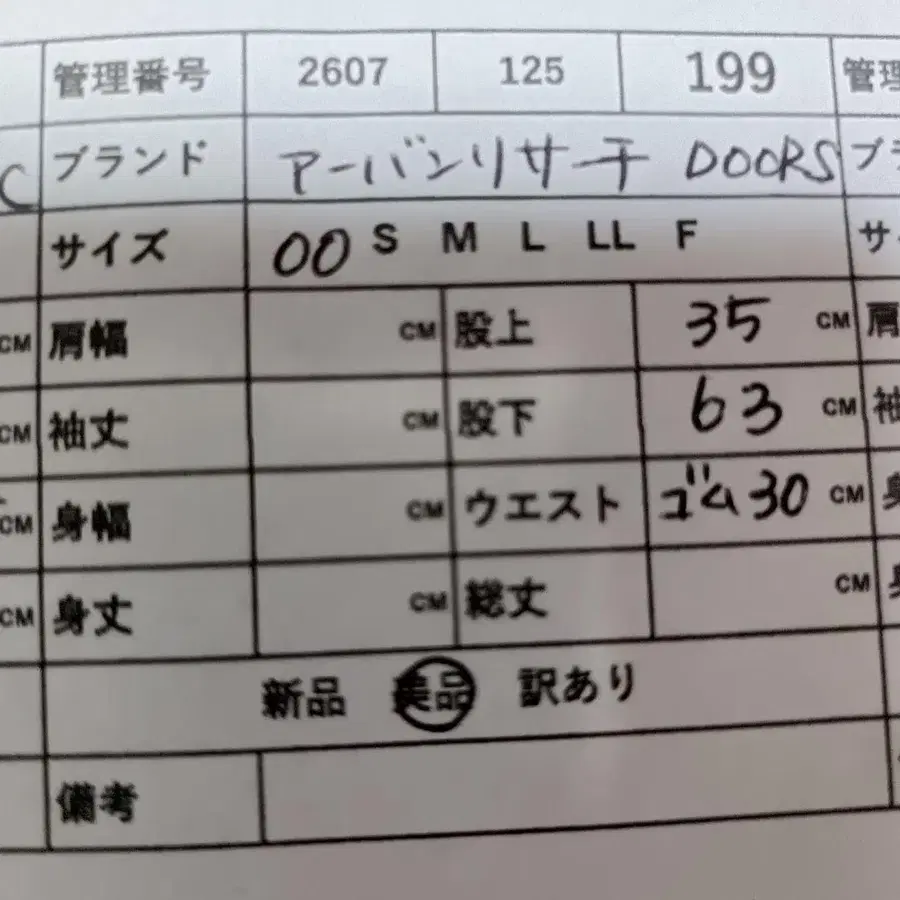 管理番号 2607 125 199 管理
C ブランド アーバンリサーチ DOORS ブラ
サイズ 00 S M L LL F サイ
CM 肩幅 CM 股上 35 CM 肩
CM 袖丈 CM 股下 63 CM 袖
CM 身幅 CM ウエスト ゴム30 CM 身
CM 身丈 CM 総丈 CM 身
新品 美品 訳あり
備考